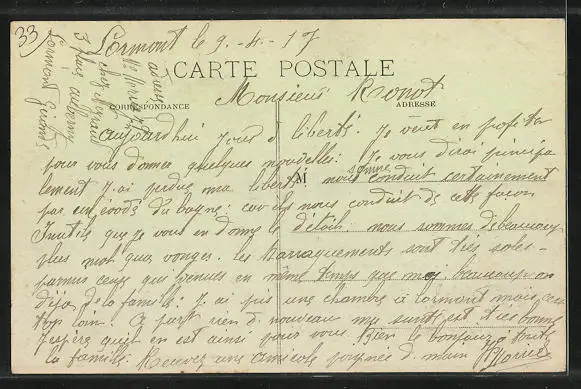 33
Lormont le 9-4-17
CARTE POSTALE
CORRESPONDANCE
ADRESSE
Monsieur Monot
aujourdhui jour d liberté. Je veut en profiter
pour vous donner quelques nouvelles: Je vous dirai principa
lement J ai perdu ma liberté nous somme conduit certainement
par un du bagne: car nous conduit de cette facon
Inutile que je vous en donne le détail: nous sommes de beaucoup
plus mal qua vonges. les barraquements sont très sales-
parmis ceux qui venues en même temps que moi beaucoup on
déja de la famille: J ai pris une chambre à Lormont mais
trop loin. A part rien d nouveau ma santé est très bonne
Jespère quil en est ainsi pour vous. Bien le bonjour à toute
la famille. Recevez une amicale poignée d main
adresse
chez
3 place
Lormont Gironde